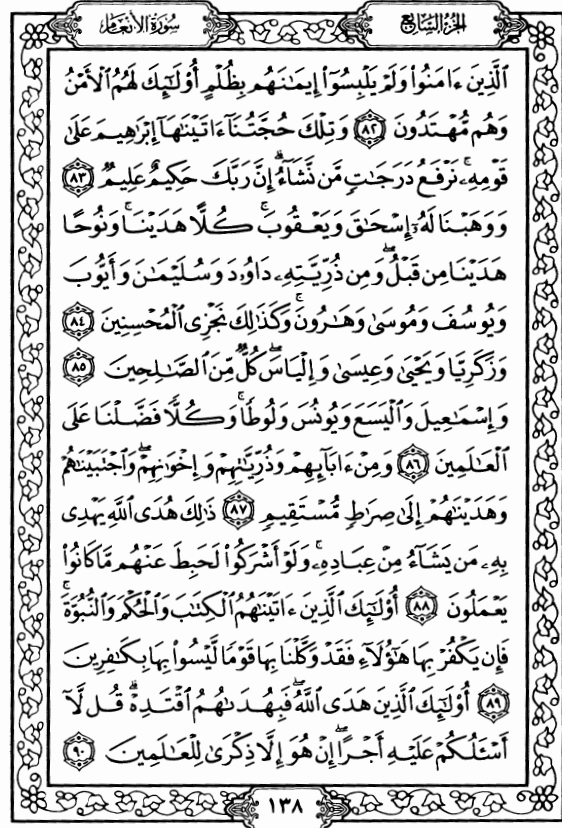 الجزء السابع
سورة الأنعام
ٱلَّذِينَ ءَامَنُوا۟ وَلَمْ يَلْبِسُوٓا۟ إِيمَـٰنَهُم بِظُلْمٍ أُو۟لَـٰٓئِكَ لَهُمُ ٱلْأَمْنُ
وَهُم مُّهْتَدُونَ ٨٢ وَتِلْكَ حُجَّتُنَآ ءَاتَيْنَـٰهَآ إِبْرَٰهِيمَ عَلَىٰ
قَوْمِهِۦ ۚ نَرْفَعُ دَرَجَـٰتٍ مَّن نَّشَآءُ ۗ إِنَّ رَبَّكَ حَكِيمٌ عَلِيمٌ ٨٣
وَوَهَبْنَا لَهُۥٓ إِسْحَـٰقَ وَيَعْقُوبَ ۚ كُلًّا هَدَيْنَا ۚ وَنُوحًا
هَدَيْنَا مِن قَبْلُ ۖ وَمِن ذُرِّيَّتِهِۦ دَاوُۥدَ وَسُلَيْمَـٰنَ وَأَيُّوبَ
وَيُوسُفَ وَمُوسَىٰ وَهَـٰرُونَ ۚ وَكَذَٰلِكَ نَجْزِى ٱلْمُحْسِنِينَ ٨٤
وَزَكَرِيَّا وَيَحْيَىٰ وَعِيسَىٰ وَإِلْيَاسَ ۖ كُلٌّ مِّنَ ٱلصَّـٰلِحِينَ ٨٥
وَإِسْمَـٰعِيلَ وَٱلْيَسَعَ وَيُونُسَ وَلُوطًا ۚ وَكُلًّا فَضَّلْنَا عَلَى
ٱلْعَـٰلَمِينَ ٨٦ وَمِنْ ءَابَآئِهِمْ وَذُرِّيَّـٰتِهِمْ وَإِخْوَٰنِهِمْ ۖ وَٱجْتَبَيْنَـٰهُمْ
وَهَدَيْنَـٰهُمْ إِلَىٰ صِرَٰطٍ مُّسْتَقِيمٍ ٨٧ ذَٰلِكَ هُدَى ٱللَّهِ يَهْدِى
بِهِۦ مَن يَشَآءُ مِنْ عِبَادِهِۦ ۚ وَلَوْ أَشْرَكُوا۟ لَحَبِطَ عَنْهُم مَّا كَانُوا۟
يَعْمَلُونَ ٨٨ أُو۟لَـٰٓئِكَ ٱلَّذِينَ ءَاتَيْنَـٰهُمُ ٱلْكِتَـٰبَ وَٱلْحُكْمَ وَٱلنُّبُوَّةَ ۚ
فَإِن يَكْفُرْ بِهَا هَـٰٓؤُلَآءِ فَقَدْ وَكَّلْنَا بِهَا قَوْمًا لَّيْسُوا۟ بِهَا بِكَـٰفِرِينَ
٨٩ أُو۟لَـٰٓئِكَ ٱلَّذِينَ هَدَى ٱللَّهُ ۖ فَبِهُدَىٰهُمُ ٱقْتَدِهْ ۗ قُل لَّآ
أَسْـَٔلُكُمْ عَلَيْهِ أَجْرًا ۖ إِنْ هُوَ إِلَّا ذِكْرَىٰ لِلْعَـٰلَمِينَ ٩٠
١٣٨